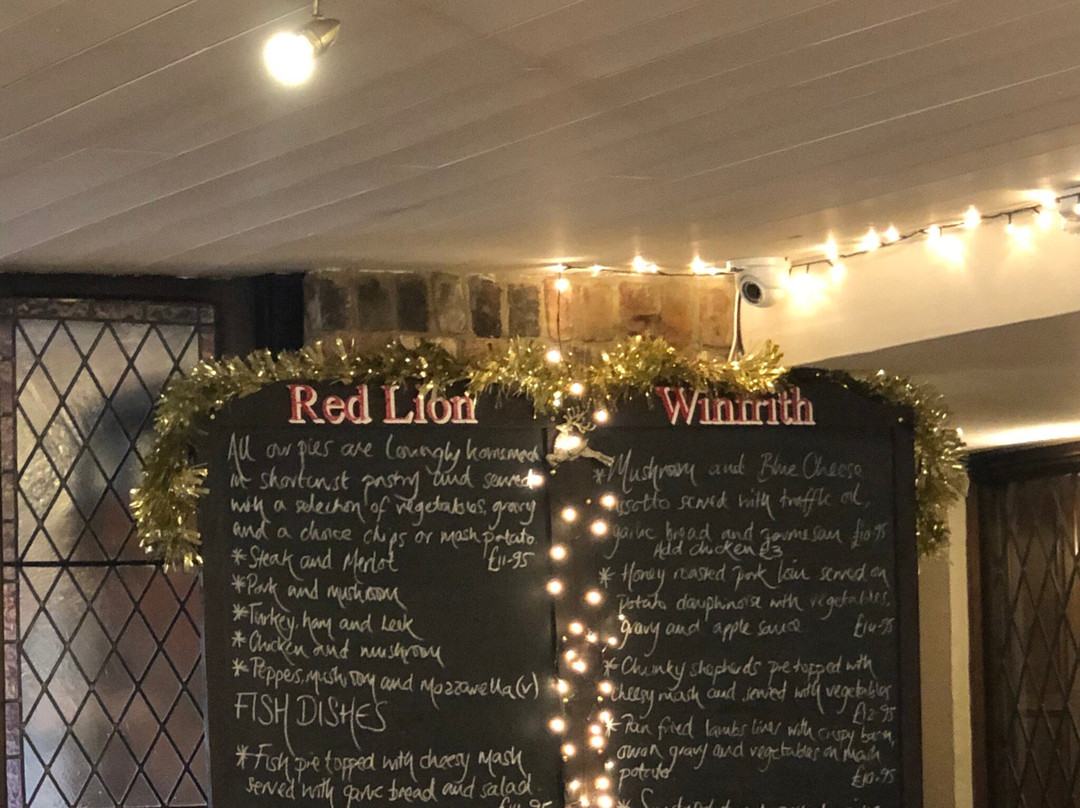 Red Lion
All our pies are lovingly homemade
in shortcrust pastry and served
with a selection of vegetables, gravy
and a choice chips or mash potato.
* Steak and Merlot £11-95
* Pork and mushroom
* Turkey, ham and Leek
* Chicken and mushroom
* Peppers, mushroom and mozzarella (v)
FISH DISHES
* Fish pie topped with cheesy mash
served with garlic bread and salad
Winfrith
* Mushroom and Blue Cheese
risotto served with truffle oil,
garlic bread and parmesan £10-95
Add chicken £3
* Honey roasted pork loin served on
potato dauphinoise with vegetables,
gravy and apple sauce £14-95
* Chunky shepherds pie topped with
cheesy mash and served with vegetables
£12-95
* Pan fried lambs liver with crispy bacon,
onion gravy and vegetables on mash
potato £10-95